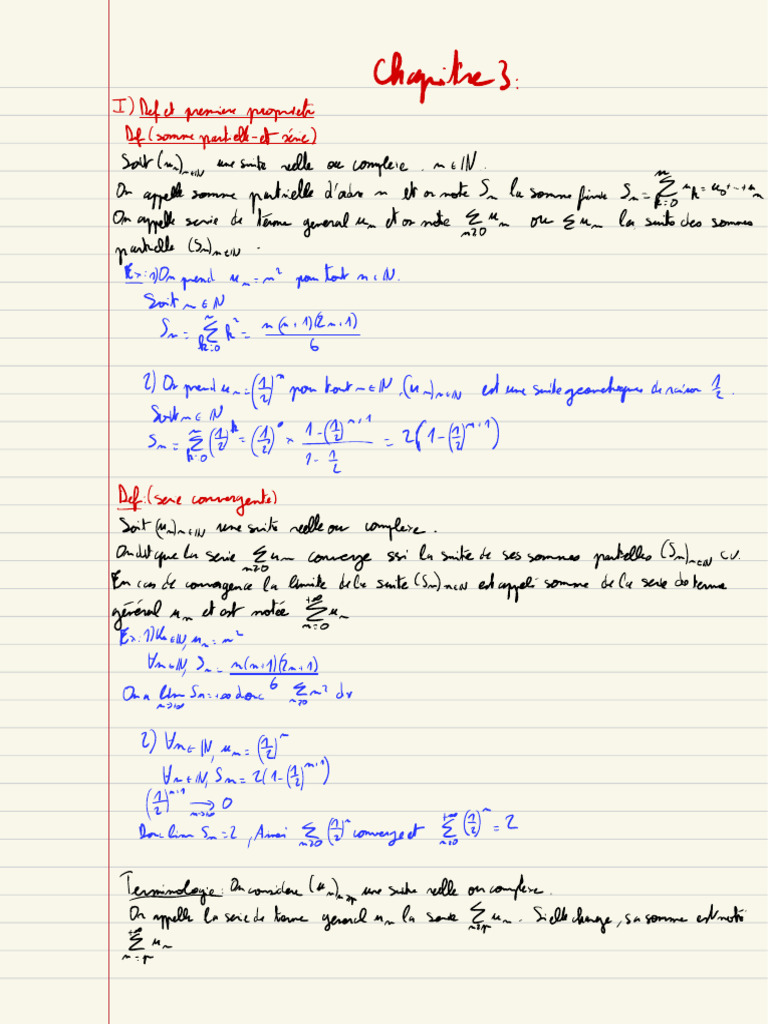 Chapitre 3:
I) Def et premiere propriete
Def (somme partielle et série)
Soit (u_n)_{n∈ℕ} une suite reelle ou complexe. n∈ℕ.
On appelle somme partielle d'ordre n et on note S_n la somme finie S_n = ∑_{k=0}^{n} u_k = u_0+...+u_n
On appelle serie de terme general u_n et on note ∑_{n≥0} u_n ou ∑u_n la suite des sommes
partielle (S_n)_{n∈ℕ}.
Ex: 1) On prend u_n = n² pour tout n∈ℕ.
Soit n∈ℕ
S_n = ∑_{k=0}^{n} k² = n(n+1)(2n+1)/6
2) On prend u_n = (1/2)^n pour tout n∈ℕ, (u_n)_{n∈ℕ} est une suite geometrique de raison 1/2.
Soit n∈ℕ
S_n = ∑_{k=0}^{n} (1/2)^k = (1/2)^0 × (1-(1/2)^{n+1})/(1-1/2) = 2(1-(1/2)^{n+1})
Def: (serie convergente)
Soit (u_n)_{n∈ℕ} une suite reelle ou complexe.
On dit que la serie ∑_{n≥0} u_n converge ssi la suite de ses sommes partielles (S_n)_{n∈ℕ} CV.
En cas de convergence la limite de la suite (S_n)_{n∈ℕ} est appelé somme de la serie de terme
général u_n et est notée ∑_{n=0}^{+∞} u_n
Ex: 1) ∀n∈ℕ, u_n = n²
∀n∈ℕ, S_n = n(n+1)(2n+1)/6
On a lim_{n→+∞} S_n = +∞ donc ∑_{n≥0} n² dv
2) ∀n∈ℕ, u_n = (1/2)^n
∀n∈ℕ, S_n = 2(1-(1/2)^{n+1})
(1/2)^{n+1} →_{n→+∞} 0
Donc lim S_n = 2, Ainsi ∑_{n≥0} (1/2)^n converge et ∑_{n=0}^{+∞} (1/2)^n = 2
Terminologie: On considere (u_n)_{n≥p} une suite reelle ou complexe.
On appelle la serie de terme general u_n la serie ∑_{n≥p} u_n. Si elle change, sa somme est noté
∑_{n=p}^{+∞} u_n